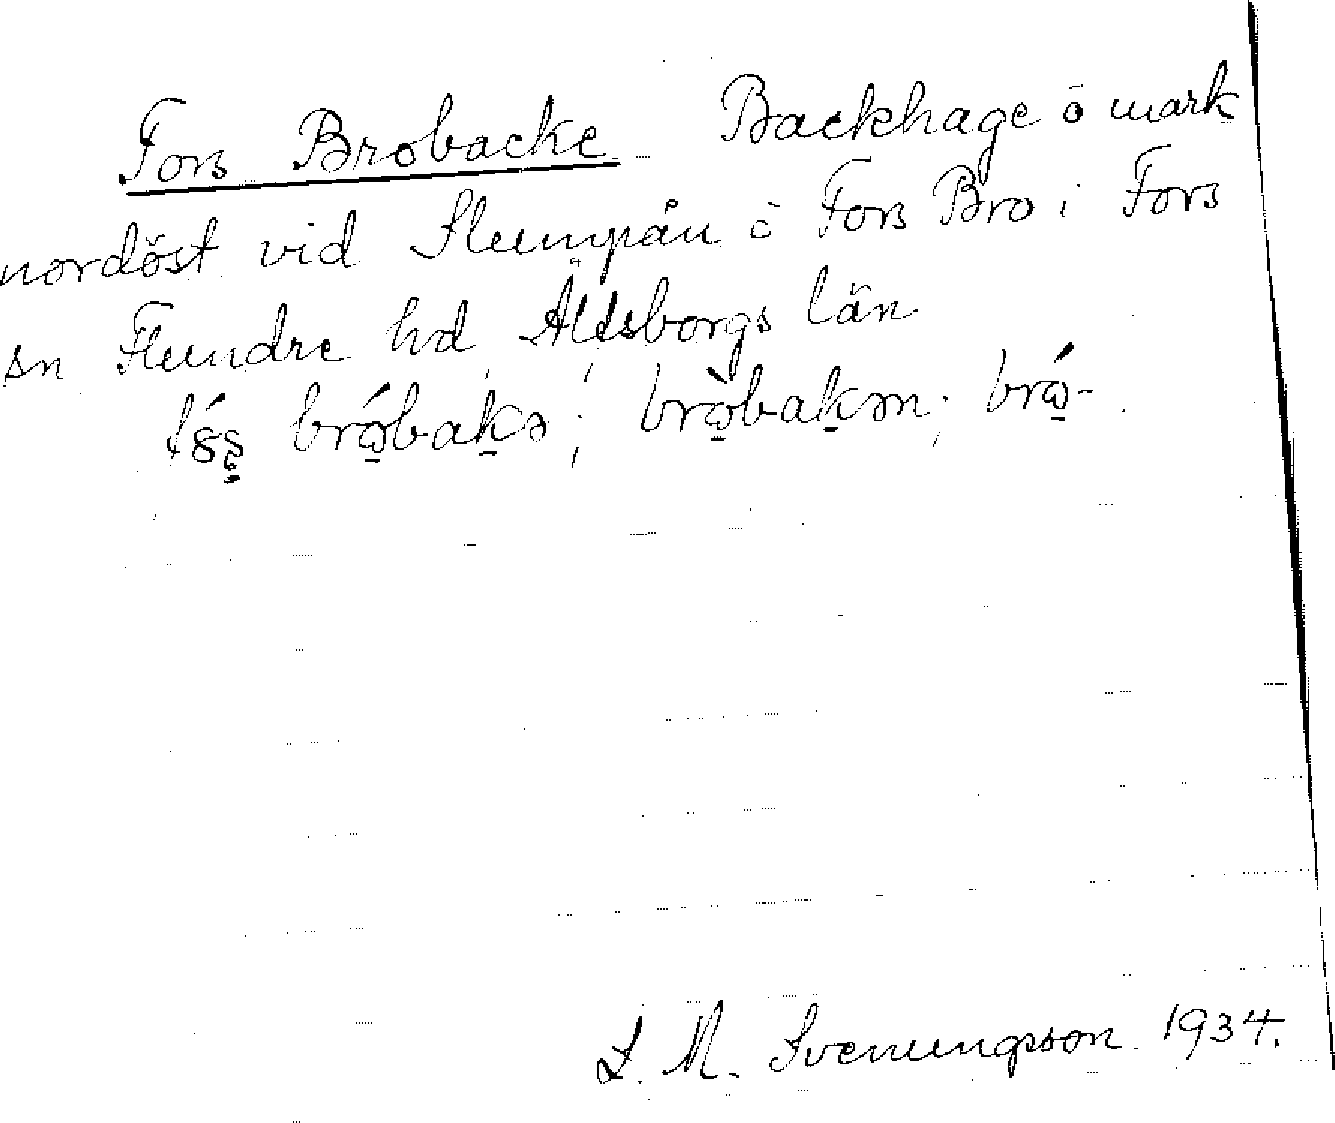 Fors Brobacke Backhage o mark
nordöst vid Slumpån o Fors Bro i Fors
sn Flundre hd, Älvsborgs län
brobakə; bròbakən; bró-
S. M. Svenungsson 1934.